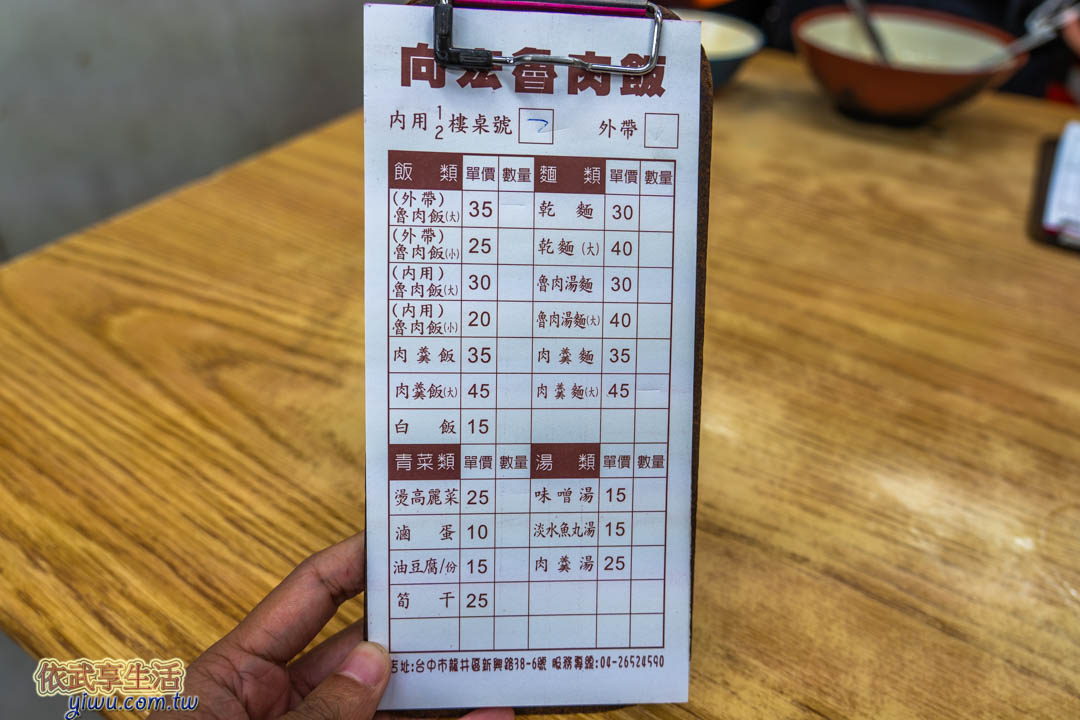 向宏魯肉飯
內用1/2樓桌號 ㄋ 外帶
飯類 單價 數量 麵類 單價 數量
(外帶)魯肉飯(大) 35 乾麵 30
(外帶)魯肉飯(小) 25 乾麵(大) 40
(內用)魯肉飯(大) 30 魯肉湯麵 30
(內用)魯肉飯(小) 20 魯肉湯麵(大) 40
肉羹飯 35 肉羹麵 35
肉羹飯(大) 45 肉羹麵(大) 45
白飯 15
青菜類 單價 數量 湯類 單價 數量
燙高麗菜 25 味噌湯 15
滷蛋 10 淡水魚丸湯 15
油豆腐/份 15 肉羹湯 25
筍干 25
店址:台中市龍井區新興路38-6號 服務專線:04-26524590
依武享生活
yiwu.com.tw